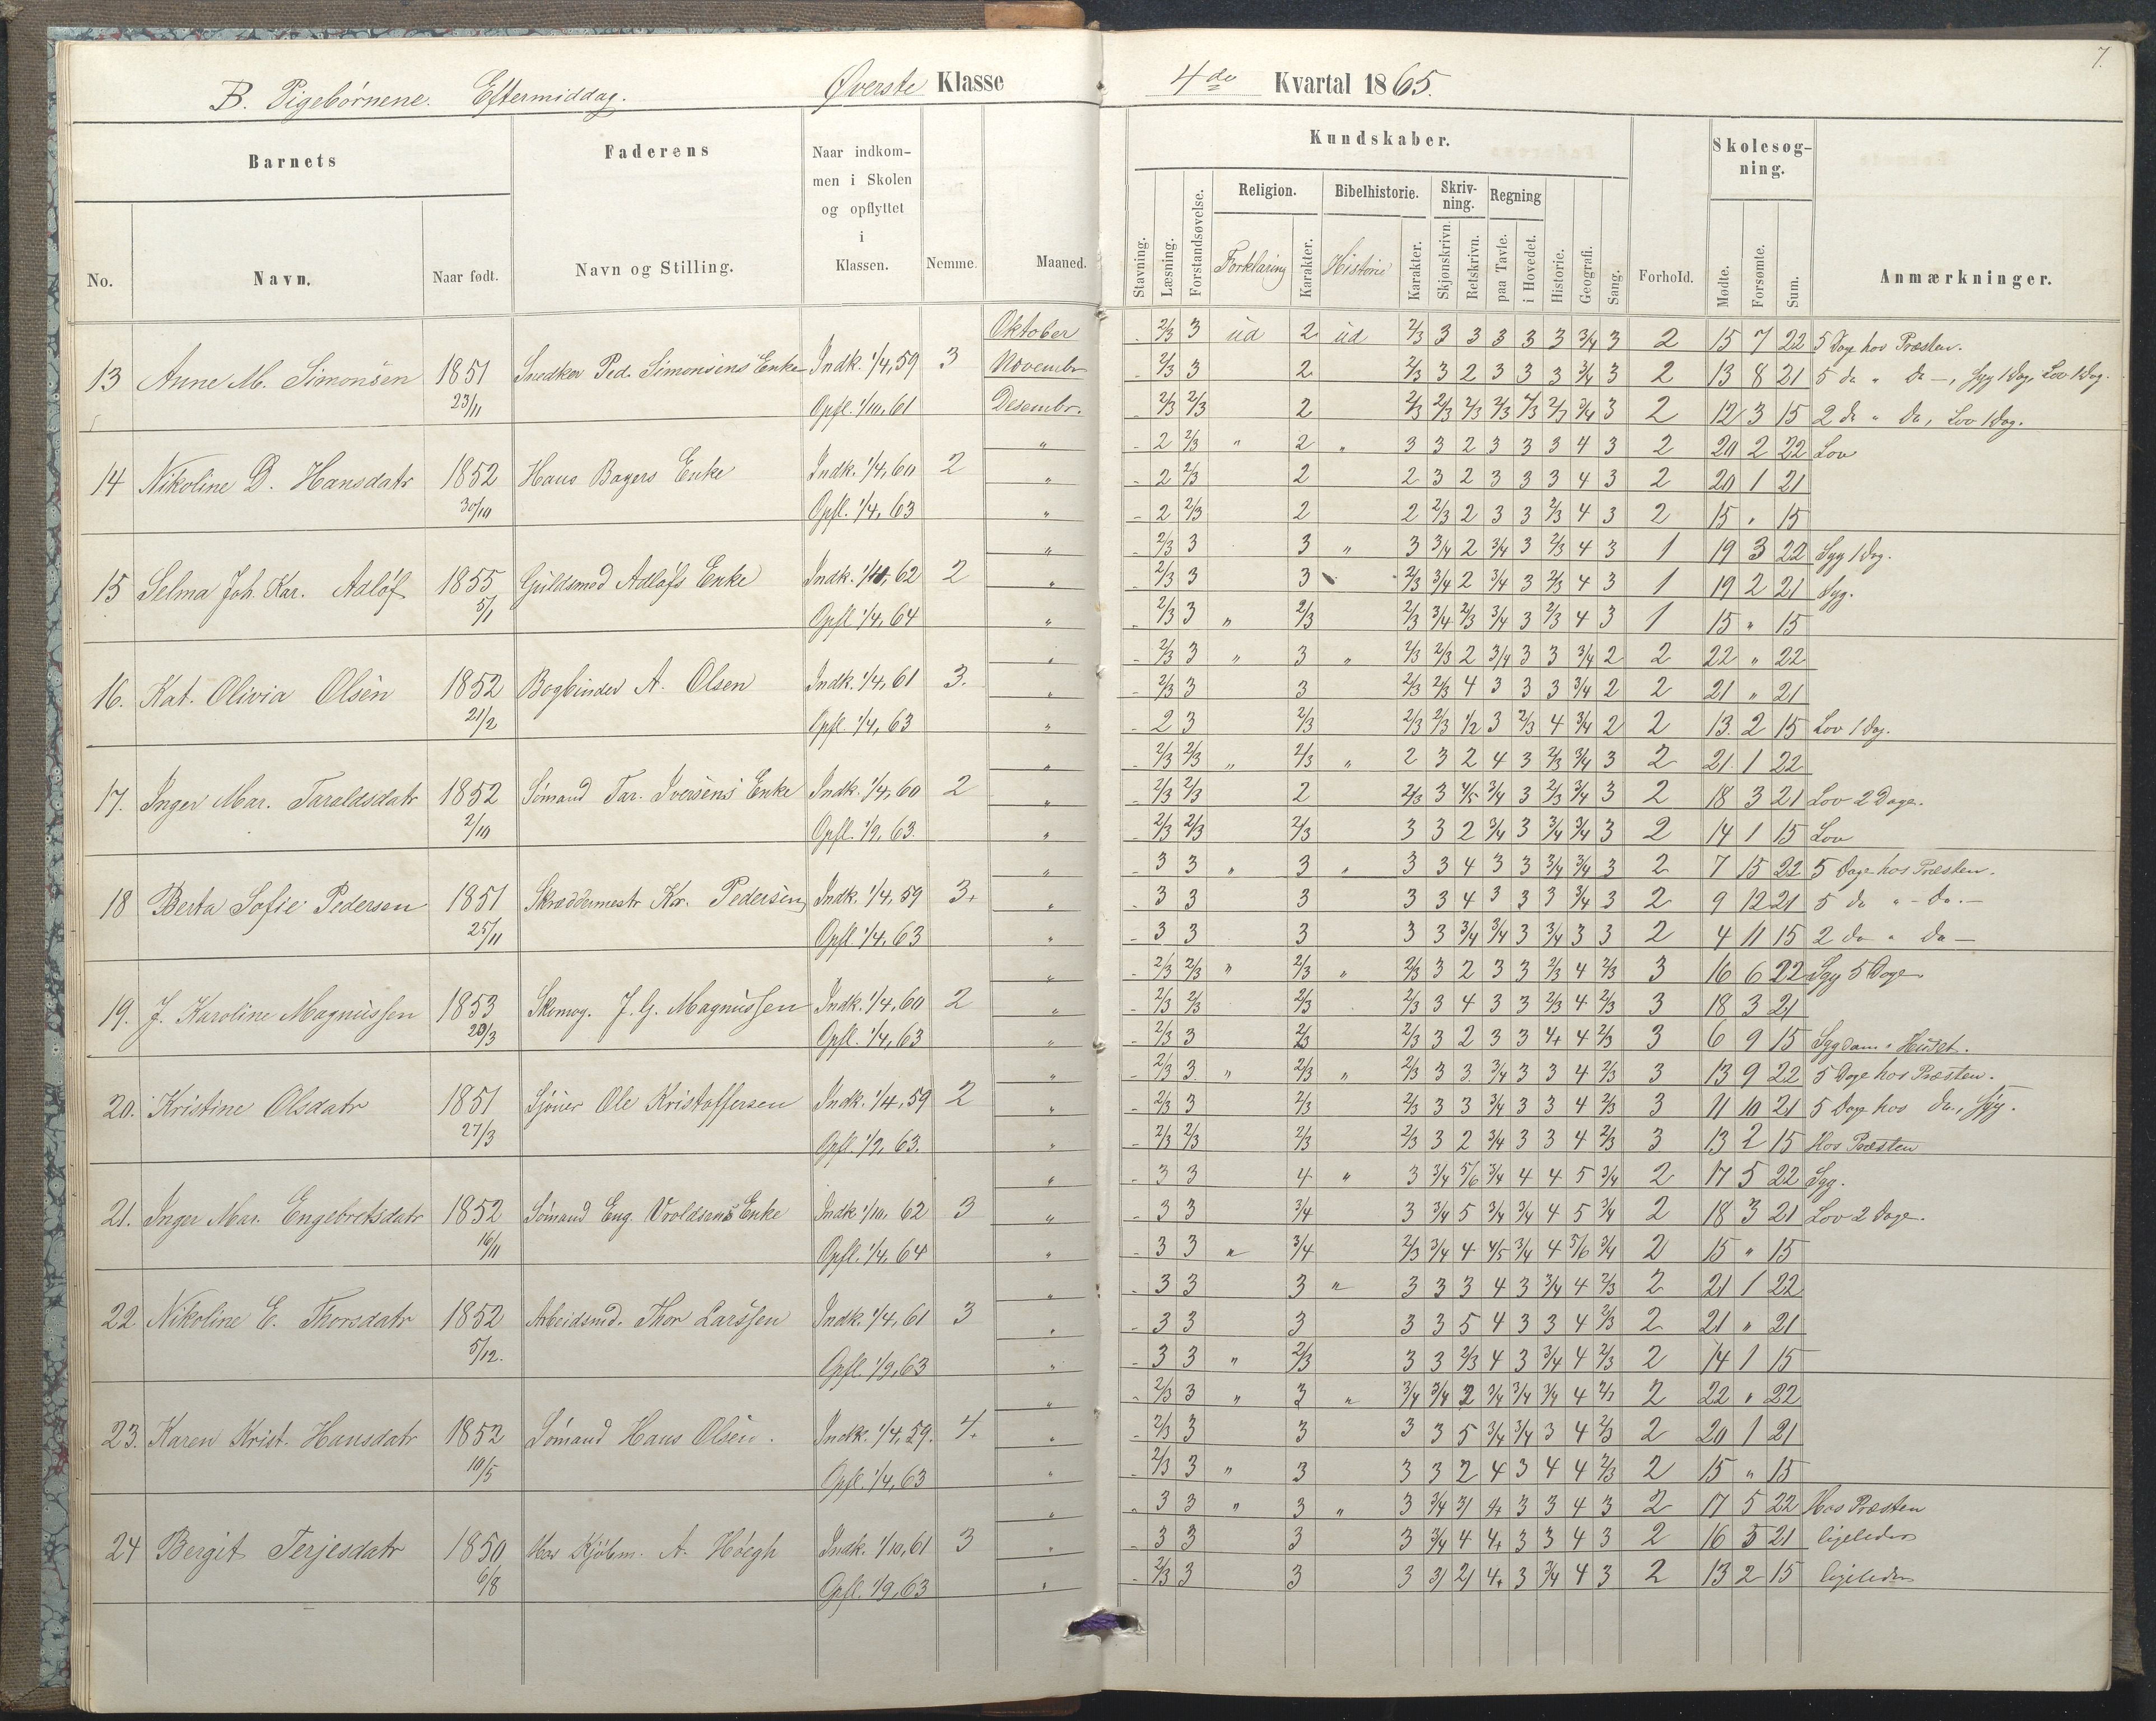 7.
B. Pigebørnene. Eftermiddag. Øverste Klasse 4de Kvartal 1865.
Barnets Faderens Naar indkommen i Skolen og opflyttet i Klassen. Nemme. Maaned. Kundskaber. Forhold. Skolesogning. Anmærkninger.
No. Navn. Naar født. Navn og Stilling.
Stavning. Læsning. Forstandsøvelse. Religion. Forklaring Karakter. Bibelhistorie. Historie Karakter. Skrivning. Skjønskrivn. Retskrivn. Regning paa Tavle. i Hovedet. Historie. Geografi. Sang. Mødte. Forsømte. Sum.
Oktober - 2/3 3 ud 2 ud 2/3 3 3 3 3 3 3/4 3 2 15 7 22 5 Dage hos Præsten.
13 Anne M. Simonsen 1851 Snedker Ped. Simonsens Enke Indk. 1/4, 59 3 Novembr - 2/3 3 2 2/3 3 2 3 3 3 3/4 3 2 13 8 21 5 do " Do —, Syg 1 Dag, Lov 1 Dag.
23/11 Opfl. 1/10, 61 Desembr. - 2/3 2/3 2 2/3 2/3 2/3 2/3 2/3 2/3 3/4 3 2 12 3 15 2 do " do, Lov 1 Dag.
" - 2 2/3 " 2 " 3 3 2 3 3 3 4 3 2 20 2 22 Lov
14 Nikoline D. Hansdatr 1852 Hans Bagers Enke Indk. 1/4, 60 2 " - 2 2/3 2 2 3 2 3 3 3 4 3 2 20 1 21
30/10 Opfl. 1/4, 63 " - 2 2/3 2 2 2/3 2 3 3 2/3 4 3 2 15 " 15
" - 2/3 3 3 " 3 3/4 2 3/4 3 2/3 4 3 1 19 3 22 Syg 1 Dag.
15 Selma Joh. Kar. Adløf 1855 Guldsmed Adløfs Enke Indk. 1/10, 62 2 " - 2/3 3 3 2/3 3/4 2 3/4 3 2/3 4 3 1 19 2 21 Syg.
5/1 Opfl. 1/4, 64 " - 2/3 3 " 2/3 2/3 3/4 2/3 3/4 3 2/3 4 3 1 15 " 15
" - 2/3 3 " 3 " 2/3 2/3 2 3/4 3 3 3/4 2 2 22 " 22
16. Kat. Olivia Olsen 1852 Bogbinder A. Olsen Indk. 1/4, 61 3. " - 2/3 3 3 2/3 2/3 4 3 3 3 3/4 2 2 21 " 21
21/2 Opfl. 1/4, 63 " - 2 3 2/3 2/3 2/3 1/2 3 2/3 4 3/4 2 2 13. 2 15 Lov 1 Dag.
" - 2/3 2/3 " 2/3 " 2 3 2 4 3 2/3 3/4 3 2 21. 1 22
17. Inger Mar. Taraldsdatr 1852 Sømand Tar. Iversens Enke Indk. 1/4, 60 2 " - 2/3 2/3 2 2/3 3 4/5 3/4 3 2/3 3/4 3 2 18 3 21 Lov 2 Dage.
2/10 Opfl. 1/9, 63. " - 2/3 2/3 2/3 3 3 2 3/4 3 3/4 3/4 3 2 14 1 15 Lov
" - 3 3 " 3 " 3 3 4 3 3 3/4 3/4 3 2 7 15 22 5 Dage hos Præsten.
18 Berta Sofie Pedersen 1851 Skræddermestr Kr. Pedersen Indk. 1/4, 59 3+ " - 3 3 3 3 3 4 3 3 3 3/4 3 2 9 12 21 5 do " - do. —
25/11 Opfl. 1/4, 63 " - 3 3 3 3 3 3/4 3/4 3 3/4 3 3 2 4 11 15 2 do " do —
" - 2/3 2/3 " 2/3 " 2/3 3 2 3 3 2/3 4 2/3 3 16 6 22 Syg 5 Dage
19. J. Karoline Magnussen 1853 Skomag. J. G. Magnussen Indk. 1/4, 60 2 " - 2/3 2/3 2/3 2/3 3 4 3 3 2/3 4 2/3 3 18 3 21
20/3 Opfl. 1/4, 63 " - 2/3 3 2/3 2/3 3 2 3 3 4+ 4 2/3 3 6 9 15 Sygdom i Huset.
" - 2/3 3. " 2/3 " 2/3 3 3. 3/4 3 3 4 2/3 3 13 9 22 5 Dage hos Præsten.
20. Kristine Olsdatr 1851 Sjøuer Ole Kristoffersen Indk. 1/4, 59 2 " - 2/3 3 2/3 2/3 3 3 3/4 3 3 4 2/3 3 11 10 21 5 Dage hos do., Syg.
27/3 Opfl. 1/9, 63. " - 2/3 2/3 2/3 2/3 3 2 3/4 3 3 4 2/3 3 13 2 15 Hos Præsten
" - 3 3 4 " 3 3/4 5/6 3/4 4 4 5 3/4 2 17 5 22 Syg.
21. Inger Mar. Engebretsdatr 1852 Sømand Eng. Vroldsens Enke Indk. 1/10, 62 3 " - 3 3 3/4 3 3/4 5 3/4 3/4 4 5 3/4 2 18 3 21 Lov 2 Dage.
16/11 Opfl. 1/4, 64 " - 3 3 " 3/4 2/3 3/4 4 4/5 3/4 4 5/6 3/4 2 15 " 15
" - 3 3 3 " 3 3 3 4 3 3/4 4 2/3 2 21 1 22
22. Nikoline E. Thorsdatr 1852 Arbeidsmd. Thor Larssen Indk. 1/4, 61 3 " - 3 3 3 3 3 5 4 3 3 4 2/3 2 21 " 21
5/12. Opfl. 1/9, 63 " - 3 3 " 2/3 3 3 2/3 4 3 3/4 4 2/3 2 14 1 15
" - 2/3 3 " 3 " 3/4 3/4 2 3/4 3/4 3/4 4 2/3 2 22 " 22
23. Karen Krist. Hansdatr 1852 Sømand Hans Olsen. Indk. 1/4, 59. 4. " - 2/3 3 3 3 3 5 3/4 3/4 3 4 2/3 2 20 1 21
10/5 Opfl. 1/4, 63 " - 2/3 3 " 3 3 3 2 4 3 4 4 2/3 2 15 " 15
" - 3 3 " 3 " 3 3/4 3/ 4+ 3 3 4 3 2 17 5 22 Hos Præsten
24 Bergit Terjesdatr 1850 Hos Kjøbm. A. Høegh Indk. 1/10, 61 3 " - 3 3 3 3 3/4 4 4+ 3 3 4 3 2 16 5 21 ligeledes
6/8 Opfl. 1/9, 63 " - 2/3 3 3 3 3/ 2/ 4+ 3 3/4 4 3 2 13 2 15 ligeledes